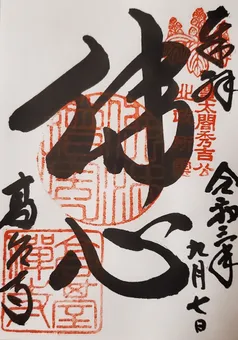 奉拝
太閤秀吉公
令和三年九月七日
佛心
高台寺